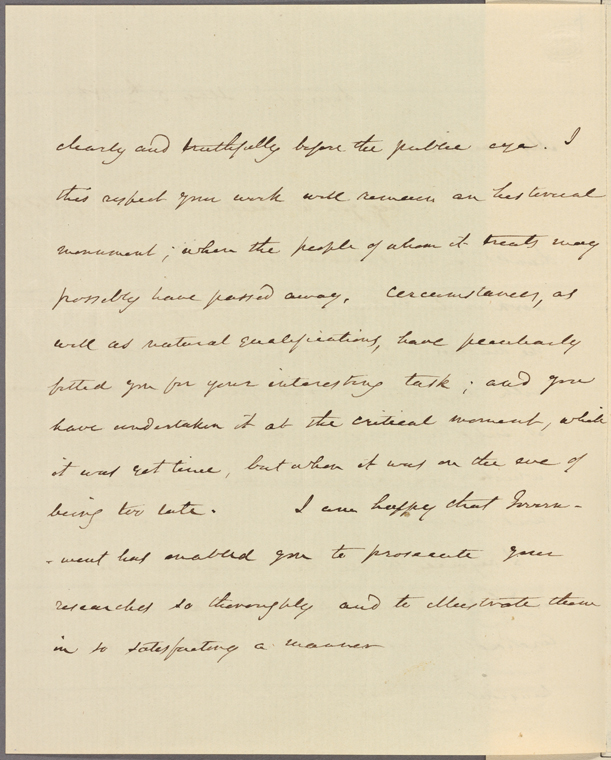 clearly and truthfully before the public eye. I
this respect your work will remain an historical
monument; when the people of whom it treats may
possibly have passed away. Circumstances, as
well as natural qualifications, have peculiarly
fitted you for your interesting task; and you
have undertaken it at the critical moment, while
it was yet time, but when it was on the eve of
being too late. I am happy that Govern-
-ment has enabled you to prosecute your
researches so thoroughly and to illustrate them
in so satisfactory a manner